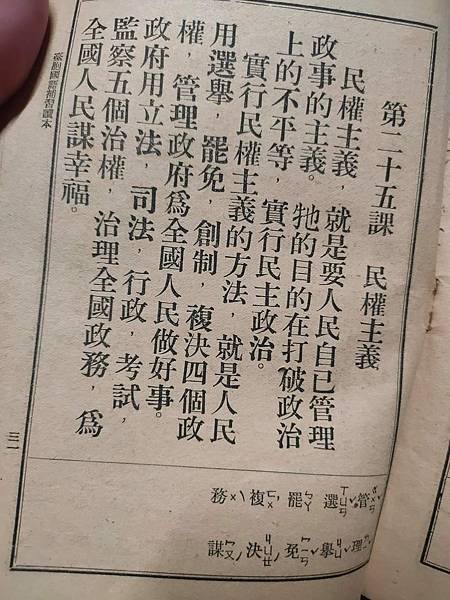 第二十五課　民權主義
民權主義，就是要人民自己管理
政事的主義。牠的目的在打破政治
上的不平等，實行民主政治。
實行民權主義的方法，就是人民
用選舉，罷免，創制，複決四個政
權，管理政府爲全國人民做好事。
政府用立法，司法，行政，考試，
監察五個治權，治理全國政務，爲
全國人民謀幸福。
臺胞國語補習讀本
三一
管ㄍㄨㄢˇ 選ㄒㄩㄢˇ 罷ㄅㄚˋ 複ㄈㄨˋ 務ㄨˋ
理ㄌㄧˇ 舉ㄐㄩˇ 免ㄇㄧㄢˇ 決ㄐㄩㄝˊ 謀ㄇㄡˊ